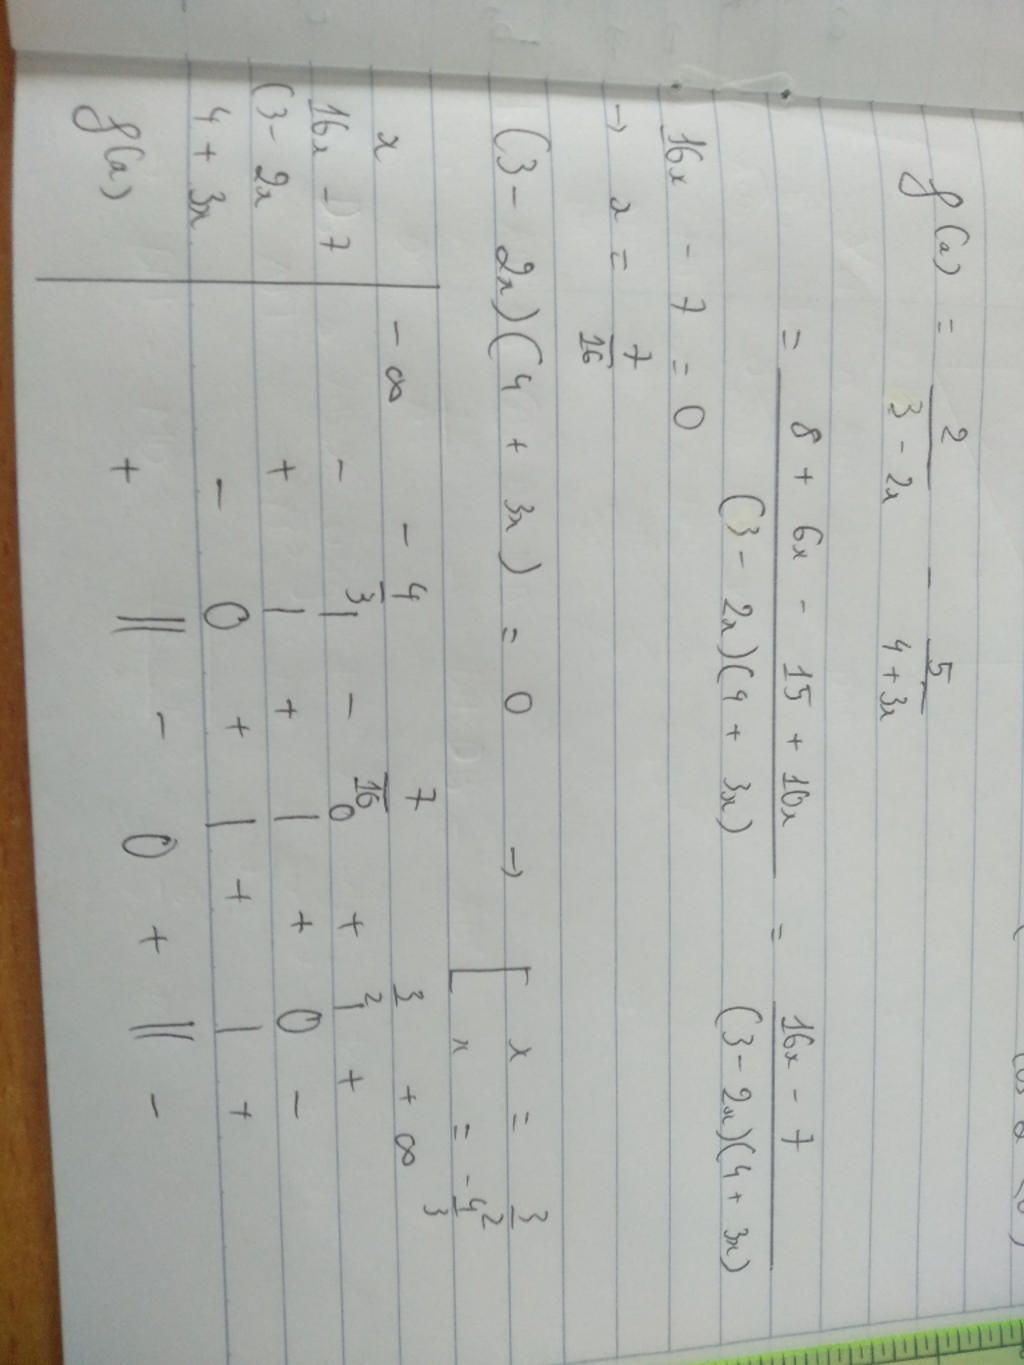 f(x) = 2/(3 - 2x) - 5/(4 + 3x)
= (8 + 6x - 15 + 10x)/((3 - 2x)(4 + 3x)) = (16x - 7)/((3 - 2x)(4 + 3x))
16x - 7 = 0
→ x = 7/16
(3 - 2x)(4 + 3x) = 0 → [ x = 3/2
x = -4/3
x | -∞ -4/3 7/16 3/2 +∞
16x - 7 | - | - 0 + | +
(3 - 2x | + | + | + 0 -
4 + 3x | - 0 + | + | +
f(x) | + || - 0 + || -